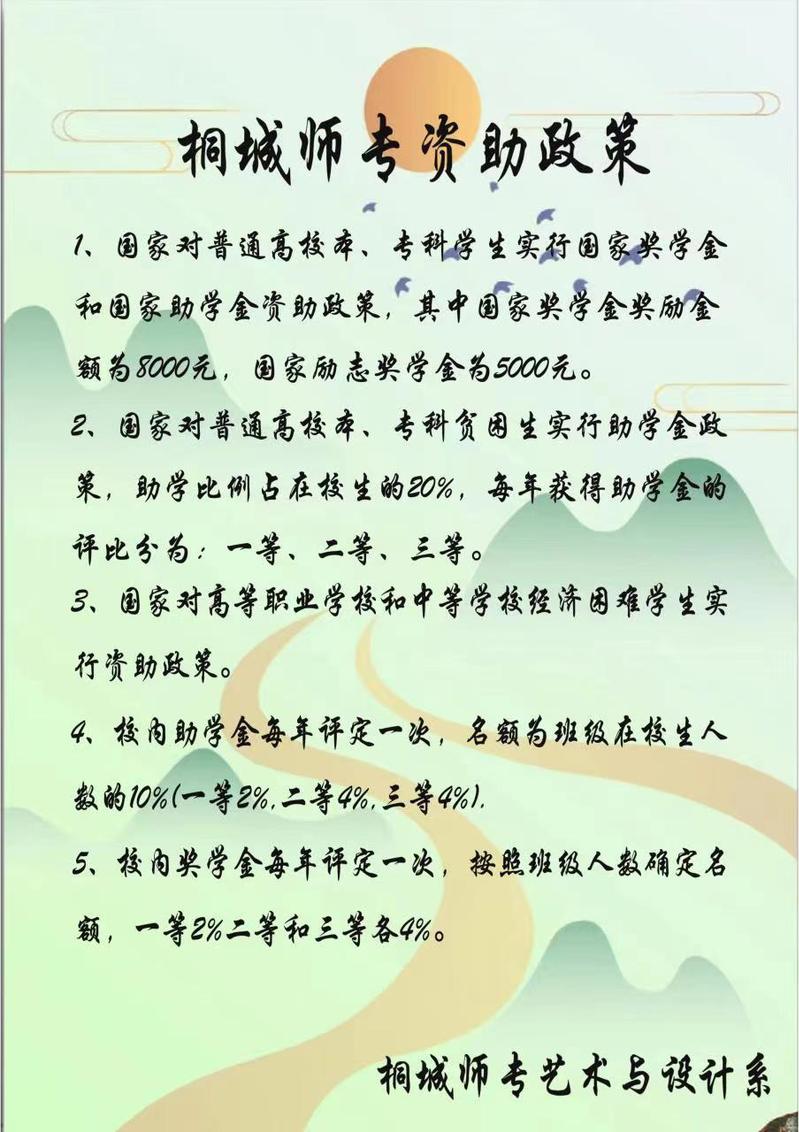 桐城师专资助政策
1、国家对普通高校本、专科学生实行国家奖学金
和国家助学金资助政策，其中国家奖学金奖励金
额为8000元，国家励志奖学金为5000元。
2、国家对普通高校本、专科贫困生实行助学金政
策，助学比例占在校生的20%，每年获得助学金的
评比分为：一等、二等、三等。
3、国家对高等职业学校和中等学校经济困难学生实
行资助政策。
4、校内助学金每年评定一次，名额为班级在校生人
数的10%(一等2%,二等4%,三等4%).
5、校内奖学金每年评定一次，按照班级人数确定名
额，一等2%二等和三等各4%。
桐城师专艺术与设计系